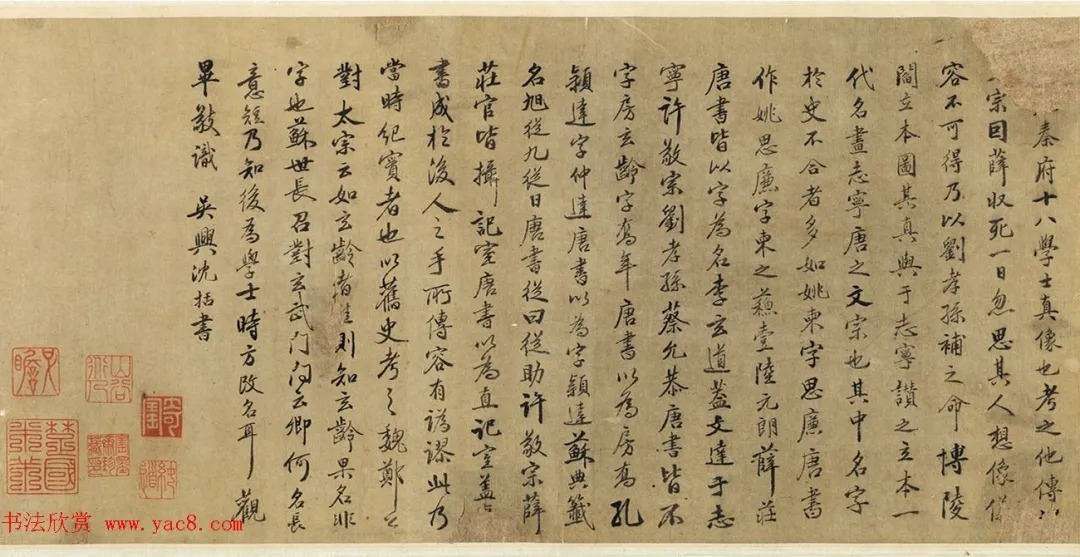 秦府十八學士真像也考之他傳
宗曰薛収死一日忽思其人想像
容不可得乃以劉孝孫補之命博陵
閻立本圖其真與于志寧讃之立本一
代名畫志寧唐之文宗也其中名字
於史不合者多如姚柬字思廉唐書
作姚思廉字柬之蘓壹陸元朗薛莊
唐書皆以字為名李玄道蓋文達于志
寧許敬宗劉孝孫蔡允恭唐書皆不
字房玄齡字喬年唐書以為房喬孔
穎達字仲達唐書以為字穎達蘇典籤
名旭從九從日唐書從曰從助許敬宗薛
莊官皆攝記室唐書以為直記室蓋
書成於後人之手所傳容有譌謬此乃
當時紀實者也以舊史考之魏鄭公
對太宗云如玄齡者則知玄齡果名非
字也蘇世長召對玄武門問云卿何名長
意短乃知後為學士時方改名耳觀
畢敬識 吳興沈括書
书法欣赏 www.yac8.com